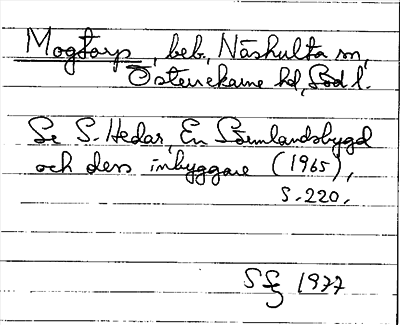 Mogtorp, beb., Näshulta sn,
Österrekarne hd, Söd l.
Se S. Hedar, En Sörmlandsbygd
och dess inbyggare (1965),
s. 220.
SFg 1977